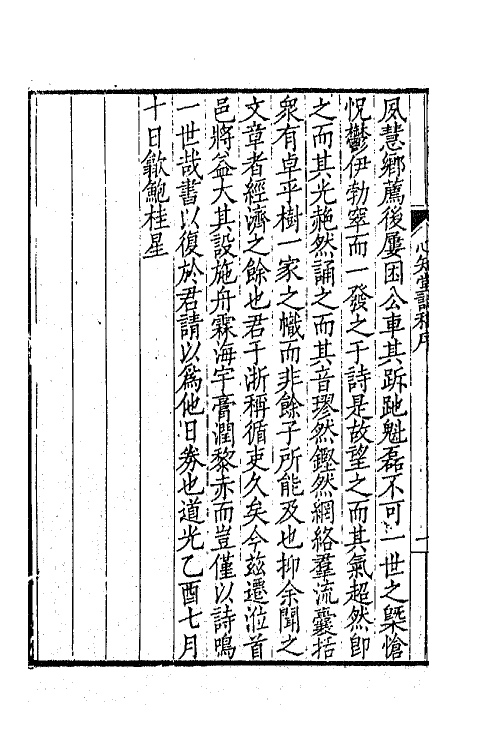 心知堂詩稿序
一
夙慧鄉薦後屢困公車其跅跑魁磊不可一世之槩愴
怳鬱伊勃窣而一發之于詩是故望之而其氣超然即
之而其光赩然誦之而其音璆然鏗然網絡羣流囊括
衆有卓乎樹一家之幟而非餘子所能及也抑余聞之
文章者經濟之餘也君于浙稱循吏久矣今兹遷涖首
邑將益大其設施舟霖海宇膏潤黎赤而豈僅以詩鳴
一世哉書以復於君請以爲他日券也道光乙酉七月
十日歙鮑桂星